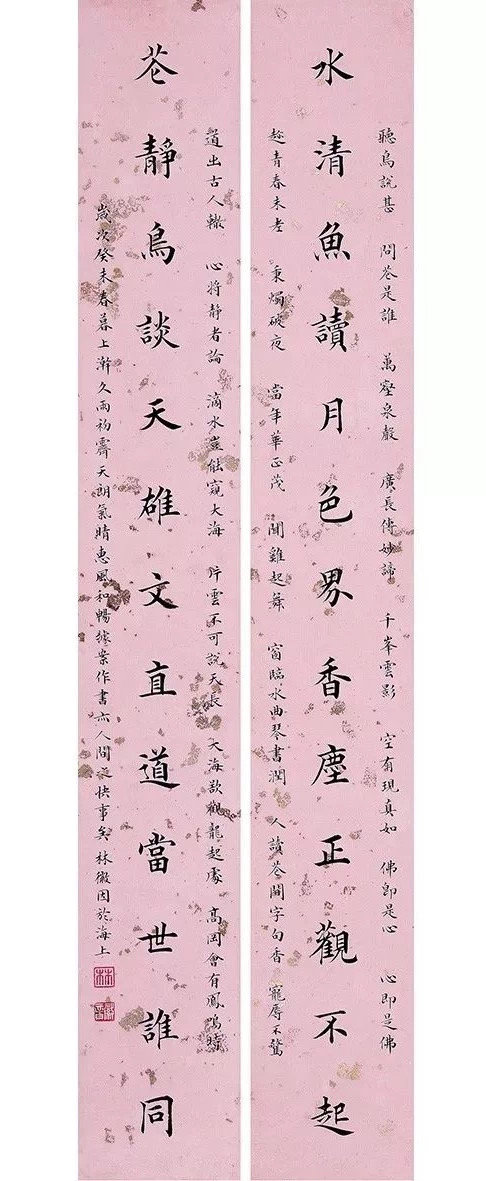 聽鳥說甚 問花是誰 萬壑泉殸 廣長傳妙諦 千峯雲影 空有現真如 佛即是心 心即是佛
水清魚讀月色界香塵正觀不起
趁青春未老 秉燭破夜 當年華正茂 聞雞起舞 窗臨水曲琴書潤 人讀花間字句香 寵辱不驚
道出古人轍 心將靜者論 滴水豈能窺大海 片雲不可說天長 大海欲觀龍起處 高岡會有鳳鳴時
花靜鳥談天雄文直道當世誰同
歲次癸未春暮上澣久雨初霽天朗氣晴惠風和暢據案作書亦人間之快事矣 林徽因於海上